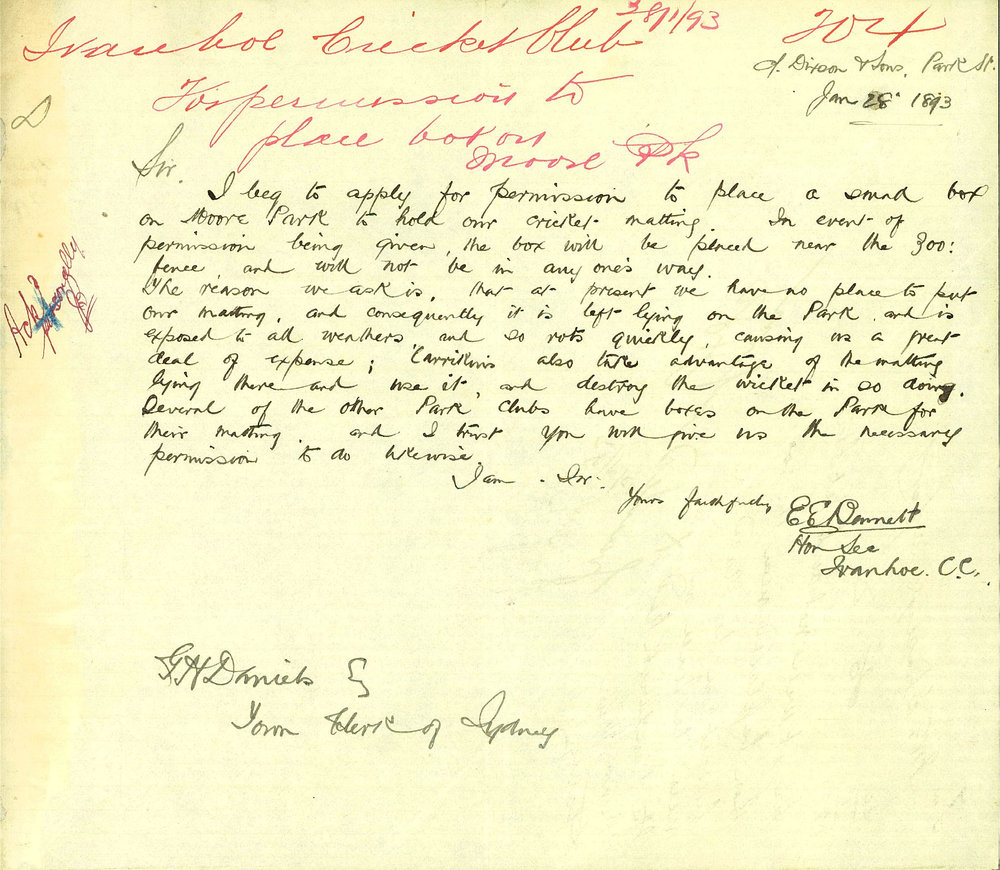 Ivanhoe Cricket Club 28/1/93 204
c/. Dixson & Sons, Park St.
Jan 28th 1893
For permission to
place box on
Moore Pk
Sir.
I beg to apply for permission to place a small box
on Moore Park to hold our cricket matting. In event of
permission being given, the box will be placed near the Zoo:
fence, and will not be in anyone's way.
The reason we ask is, that at present we have no place to put
our matting, and consequently it is left lying on the Park and is
exposed to all weathers, and so rots quickly, causing us a great
deal of expense; Larrikins also take advantage of the matting
lying there and use it, and destroy the wicket in so doing.
Several of the other Park clubs have boxes on the Park for
their matting, and I trust you will give us the necessary
permission to do likewise
I am. Sir.
Yours faithfully
E E Bennett
Hon Sec
Ivanhoe. C.C.
Ackd
G H Daniels
Town Clerk of Sydney